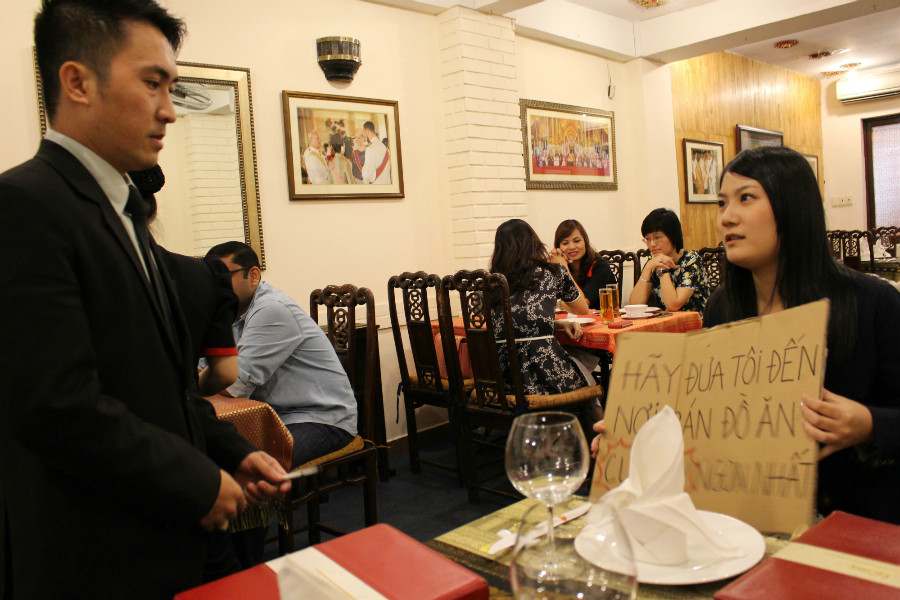 HÃY ĐƯA TÔI ĐẾN
NƠI BÁN ĐỒ ĂN
NGON NHẤT